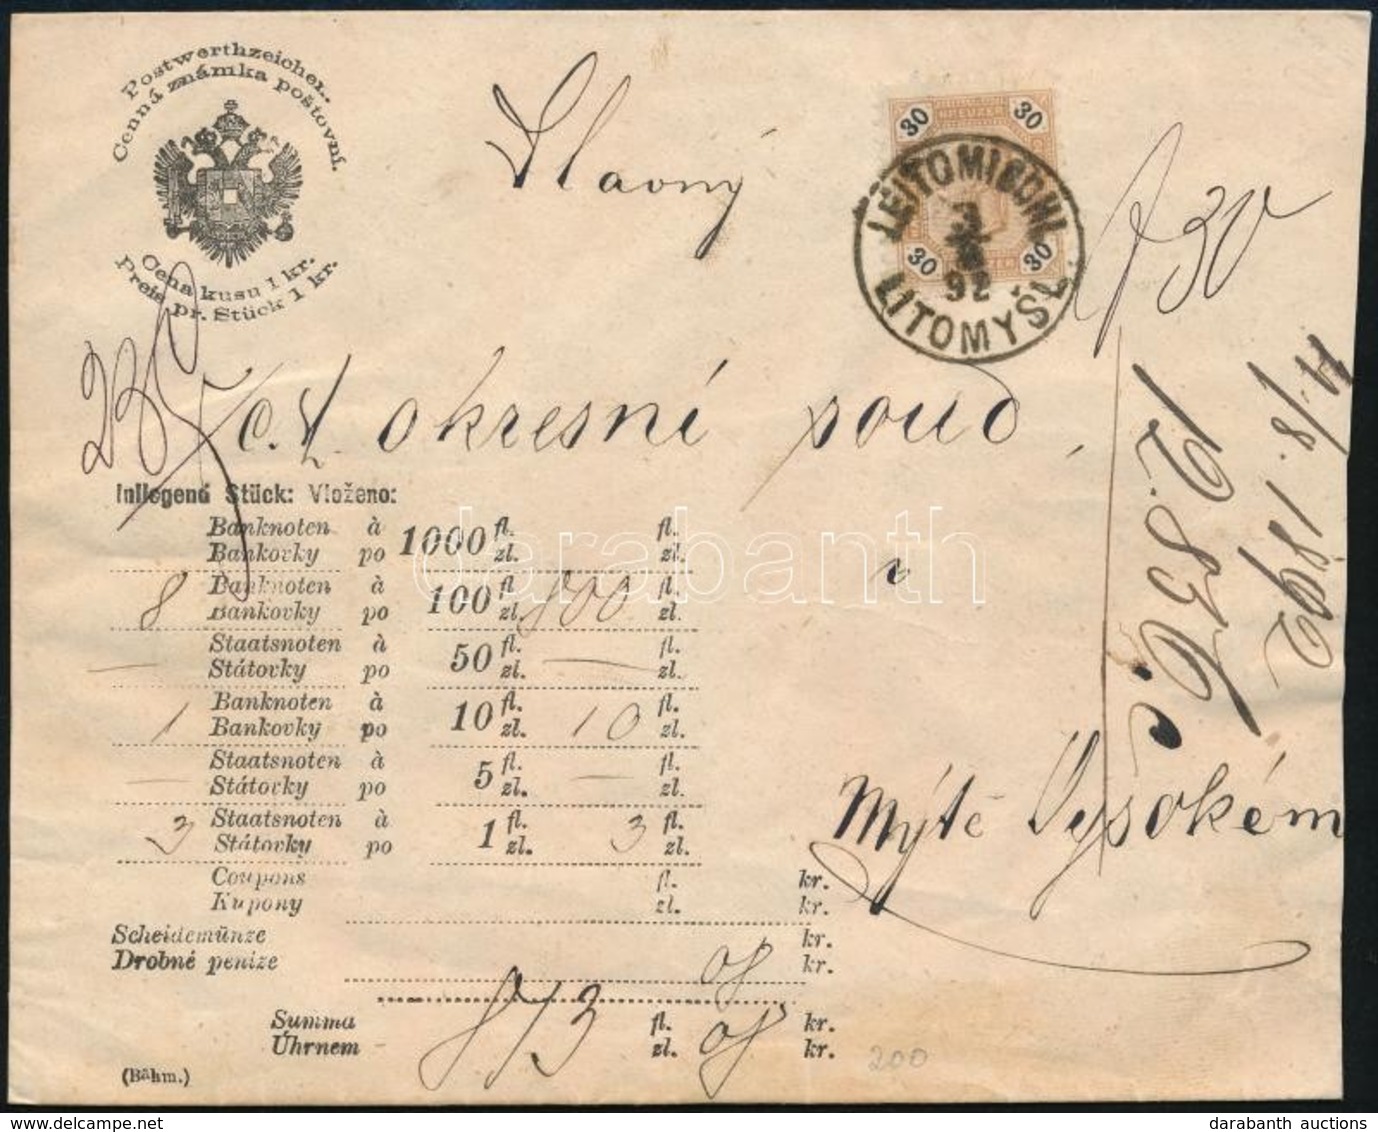 Postwerthzeichen.
Cenná známka poštovní.
Cena kusu 1 kr.
Preis pr. Stück 1 kr.
Slavný
30 30
30 30
LEITOMISCHL
3
92
LITOMYŠL
c. k. okresní soud
v
Mýtě Vysokém
Inliegend Stück: Vloženo:
Banknoten à 1000 fl. fl.
Bankovky po zl. zl.
8 Banknoten à 100 fl. 800 fl.
Bankovky po zl. zl.
— Staatsnoten à 50 fl. — fl.
Státovky po zl. zl.
1 Banknoten à 10 fl. 10 fl.
Bankovky po zl. zl.
— Staatsnoten à 5 fl. — fl.
Státovky po zl. zl.
3 Staatsnoten à 1 fl. 3 fl.
Státovky po zl. zl.
Coupons fl. kr.
Kupony zl. kr.
Scheidemünze kr.
Drobné peníze kr.
Summa 813 fl. kr.
Úhrnem zl. kr.
(Böhm.)
200
darabanth
darabanth auctions